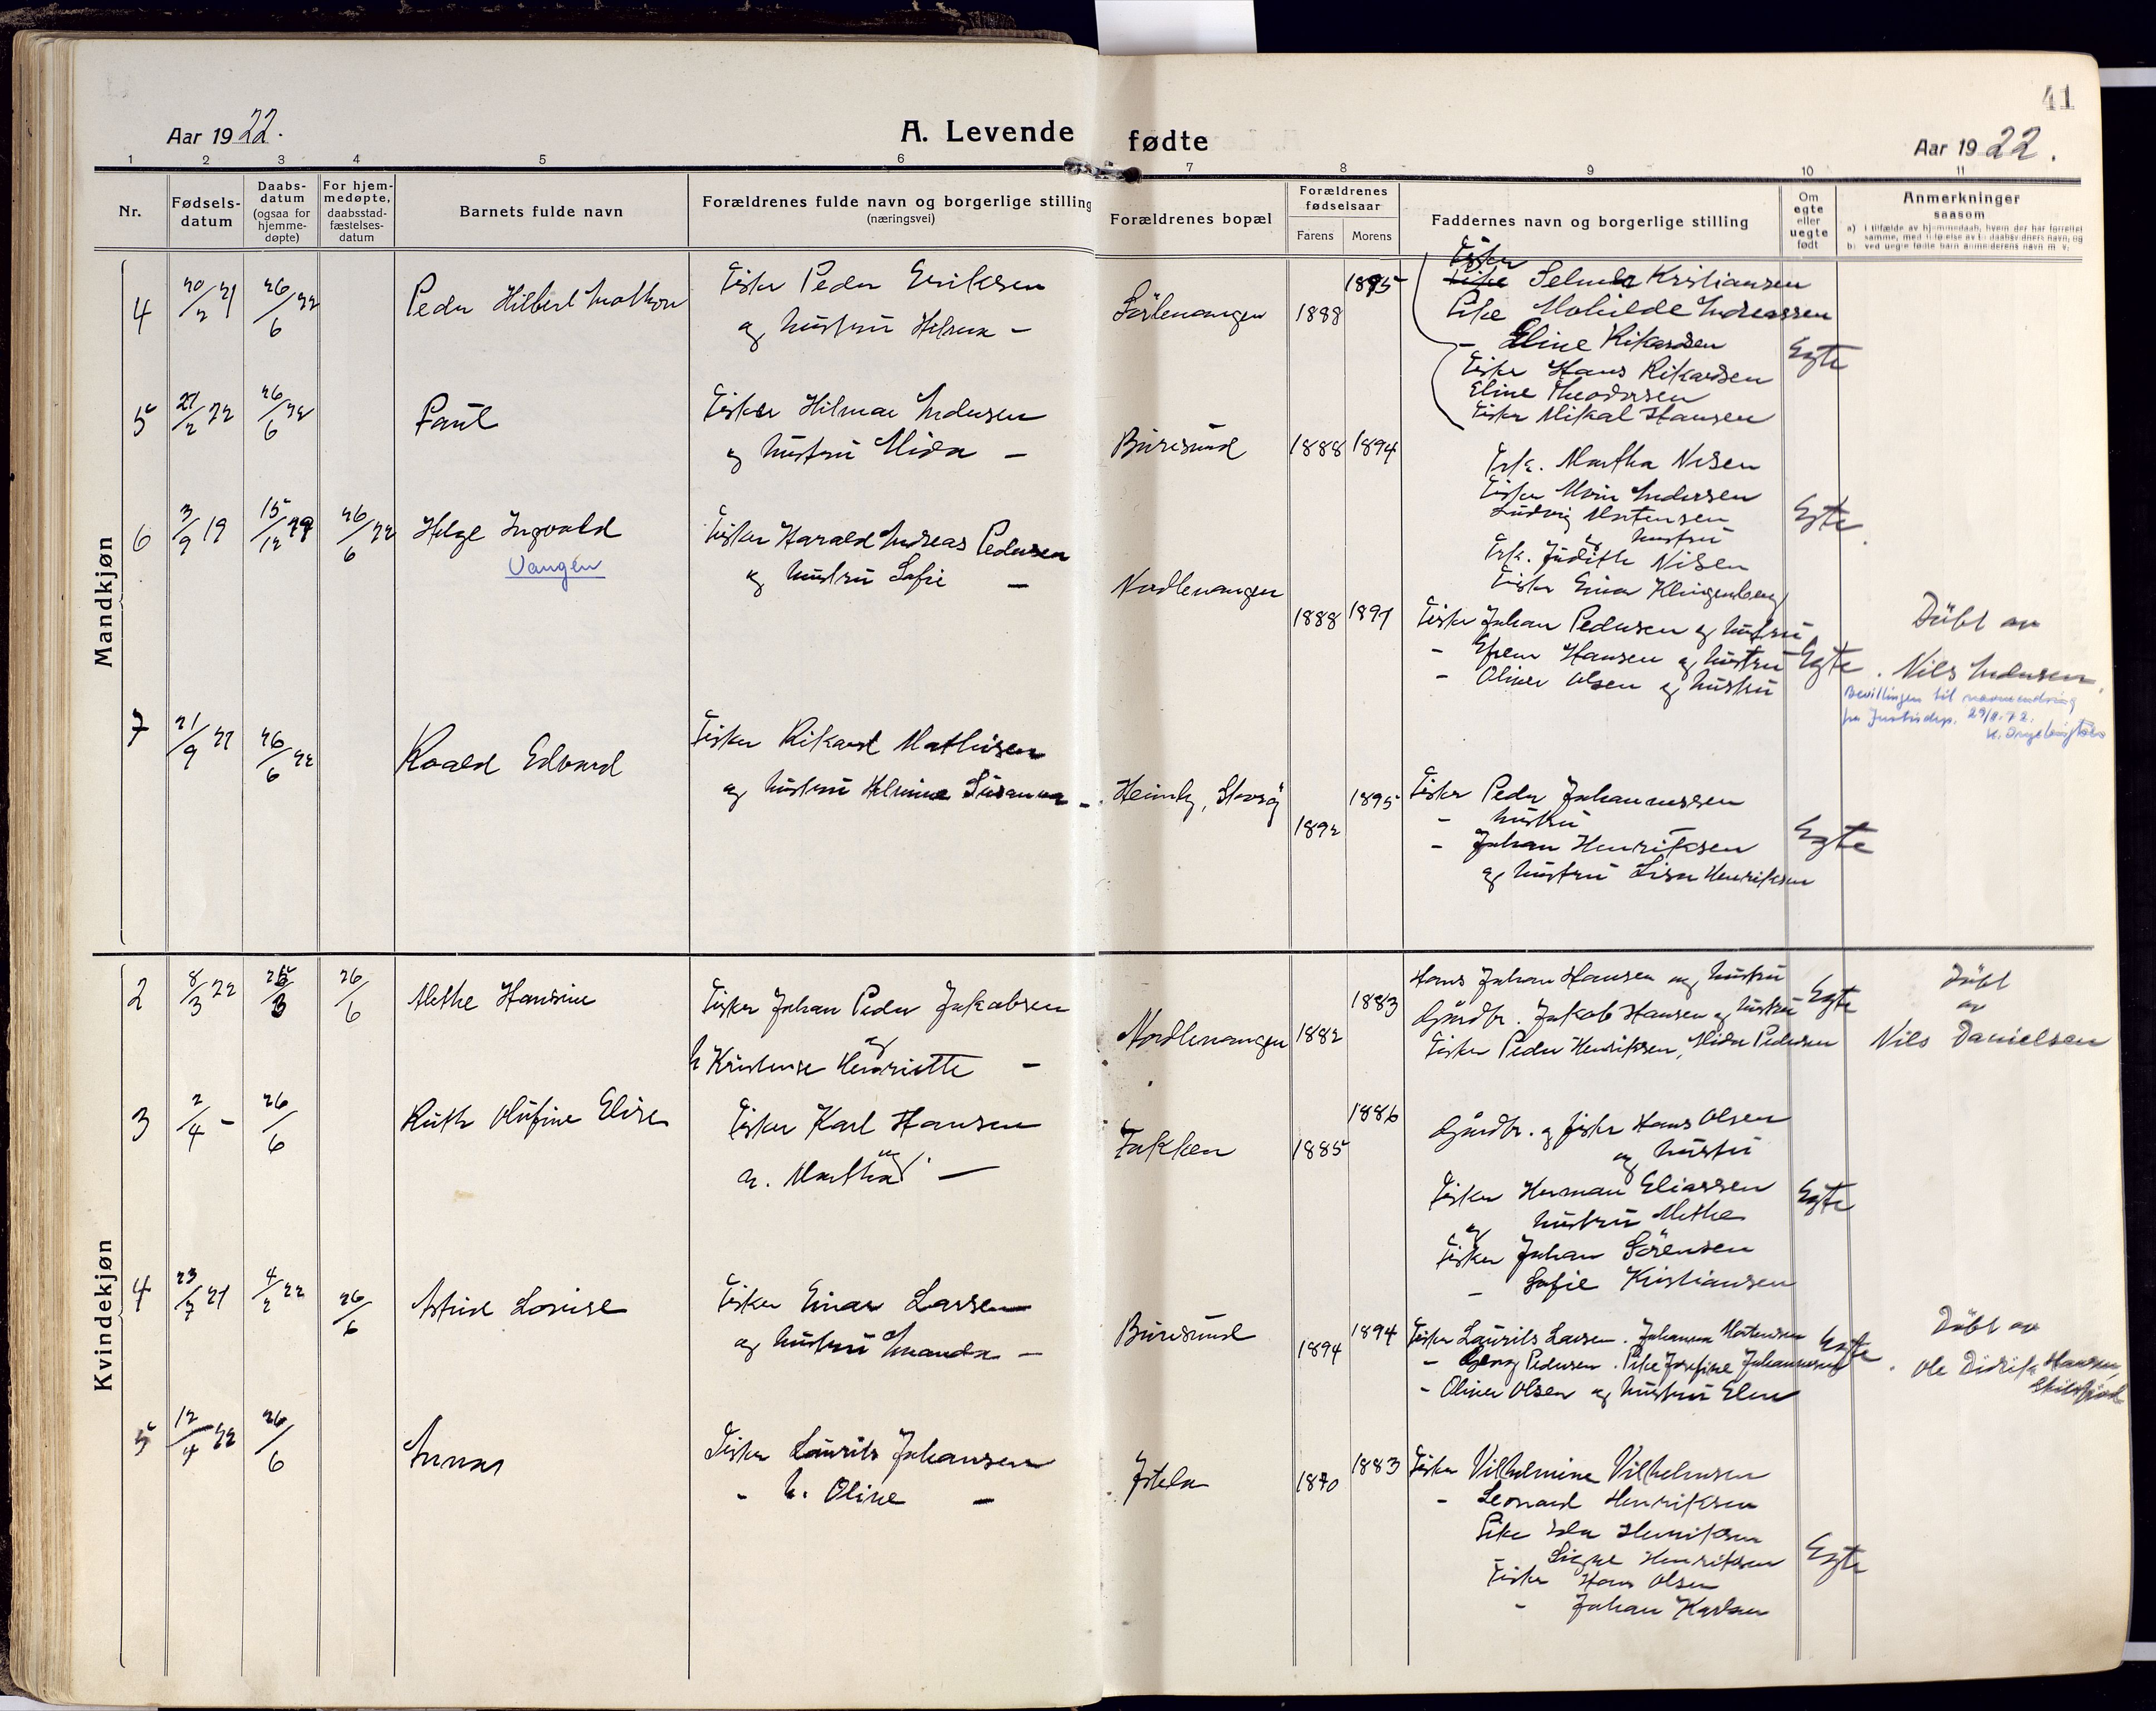 41
Aar 1922.
A. Levende fødte
Aar 1922.
1 2 3 4 5 6 7 8 9 10 11
Nr.
Fødsels-
datum
Daabs-
datum
(ogsaa for
hjemme-
døpte)
For hjem-
medøpte,
daabsstad-
fæstelses-
datum
Barnets fulde navn
Forældrenes fulde navn og borgerlige stilling
(næringsvei)
Forældrenes bopæl
Forældrenes
fødselsaar
Farens Morens
Faddernes navn og borgerlige stilling
Om
egte
eller
uegte
født
Anmerkninger
saasom
a) i tilfælde av hjemmedaab, hvem der har forrettet
samme, med tilføielse av
b) ved uegte fødte barn anmelderens navn m. v.
Mandkjøn
4 20/2 21 26/6 22 Peder Hilbert
Fisker Peder Eriksen
og hustru Helma -
Sörlenangen 1888 1895
Fisker
Selmer Kristiansen
Pike Mohilde Andreassen
- Eline Rikardsen
Fisker Hans Rikardsen
Eline Theodorsen
Fisker Mikal Hansen
Egte
5 21/2 22 26/6 22 Paul
Fisker Hilmar Andersen
og hustru Hida -
Burisund 1888 1894
Frk. Martha Nilsen
Fisker Andersen
Ludvig Mortensen
og hustru
Frk. Judith Nilsen
Fisker Einar Klingenberg
Egte.
6 3/9 19 15/12 26/6 22 Helge Ingvald
Vangen
Fisker Harald Andreas Pedersen
og hustru Sofie -
Nordlenangen
1888 1897
Fisker Johan Pedersen og hustru
- Efrem Hansen og hustru
- Oliver Olsen og hustru
Egte.
Döbt av
Nils Andersen,
Bevillingen til navneendring
fra Justisdep. 29/8.72.
7 21/9 21 26/6 22 Roald Edvard
Fisker Rikard Mathisen
og hustru Helmine Susanna -
Heimly, Storsö
1892 1895
Fisker Peder Johannessen
- hustru
- Johan Henriksen
og hustru Lisa Henriksen
Egte
Kvindekjøn
2 8/3 22 26/6 Methe Hansine
Fisker Johan Peder Jakobsen
og
h Kristense Henriette -
Nordlenangen 1882 1883
Hans Johan Hansen og hustru
Gårdbr. Jakob Hansen og hustru
Fisker Peder Henriksen, Hida Pedersen
Egte
Döbt
av
Nils Danielsen
3 2/4 - 26/6 Ruth Olufine Elise
Fisker Karl Hansen
og
h. Martha -
Jakken 1885 1886
Gårdbr. og fisker Hans Olsen
og hustru
Fisker Herman Eliassen
og hustru Methe
Fisker Johan Sörensen
- Sofie Kristiansen
Egte
4 23/7 21 4/2 22 26/6 Astrid Lovise
Fisker Einar Larsen
og hustru Amanda -
Burisund 1894 1894
Fisker Laurits Larsen. Johanna Mortensen
- Georg Pedersen. Pike Josefine Johannesen
- Oliver Olsen og hustru Elen
Egte.
Döbt av
Ole Didrik Hansen,
5 12/4 22 26/6 Anna
Fisker Laurits Johansen
- h. Oline -
Jstela 1870 1883
Fisker Vilhelmine Vilhelmsen
- Leonard Henriksen
Pike Ida Henriksen
- Signe Henriksen
Fisker Hans Olsen
- Johan Karlsen
Egte